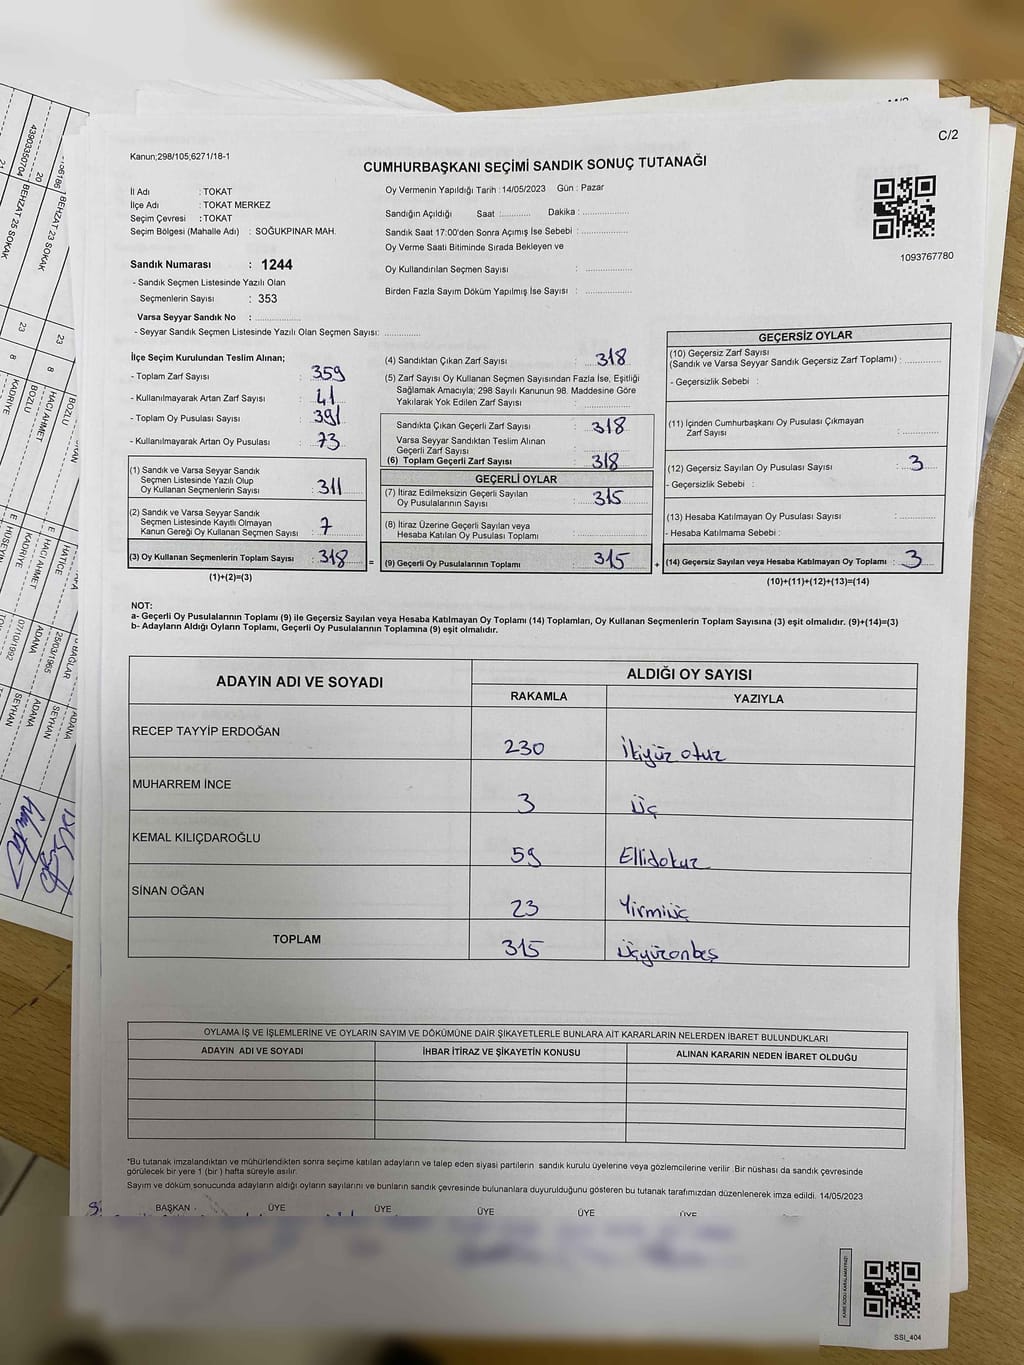 C/2
Kanun;298/105,6271/18-1
CUMHURBAŞKANI SEÇİMİ SANDIK SONUÇ TUTANAĞI
İl Adı : TOKAT
İlçe Adı : TOKAT MERKEZ
Seçim Çevresi : TOKAT
Seçim Bölgesi (Mahalle Adı) : SOĞUKPINAR MAH.
Sandık Numarası : 1244
- Sandık Seçmen Listesinde Yazılı Olan
Seçmenlerin Sayısı : 353
Varsa Seyyar Sandık No :
- Seyyar Sandık Seçmen Listesinde Yazılı Olan Seçmen Sayısı:
Oy Vermenin Yapıldığı Tarih : 14/05/2023 Gün : Pazar
Sandığın Açıldığı Saat : Dakika :
Sandık Saat 17:00'den Sonra Açımış İse Sebebi :
Oy Verme Saati Bitiminde Sırada Bekleyen ve
Oy Kullandırılan Seçmen Sayısı :
Birden Fazla Sayım Döküm Yapılmış İse Sayısı :
1093767780
İlçe Seçim Kurulundan Teslim Alınan;
- Toplam Zarf Sayısı : 359
- Kullanılmayarak Artan Zarf Sayısı : 41
- Toplam Oy Pusulası Sayısı : 391
- Kullanılmayarak Artan Oy Pusulası : 73
(1) Sandık ve Varsa Seyyar Sandık
Seçmen Listesinde Yazılı Olup
Oy Kullanan Seçmenlerin Sayısı : 311
(2) Sandık ve Varsa Seyyar Sandık
Seçmen Listesinde Kayıtlı Olmayan
Kanun Gereği Oy Kullanan Seçmen Sayısı : 7
(3) Oy Kullanan Seçmenlerin Toplam Sayısı : 318 =
(1)+(2)=(3)
(4) Sandıktan Çıkan Zarf Sayısı : 318
(5) Zarf Sayısı Oy Kullanan Seçmen Sayısından Fazla İse, Eşitliği
Sağlamak Amacıyla; 298 Sayılı Kanunun 98. Maddesine Göre
Yakılarak Yok Edilen Zarf Sayısı :
Sandıkta Çıkan Geçerli Zarf Sayısı : 318
Varsa Seyyar Sandıktan Teslim Alınan
Geçerli Zarf Sayısı :
(6) Toplam Geçerli Zarf Sayısı : 318
GEÇERLİ OYLAR
(7) İtiraz Edilmeksizin Geçerli Sayılan
Oy Pusulalarının Sayısı : 315
(8) İtiraz Üzerine Geçerli Sayılan veya
Hesaba Katılan Oy Pusulası Toplamı :
(9) Geçerli Oy Pusulalarının Toplamı : 315 +
GEÇERSİZ OYLAR
(10) Geçersiz Zarf Sayısı
(Sandık ve Varsa Seyyar Sandık Geçersiz Zarf Toplamı) :
- Geçersizlik Sebebi :
(11) İçinden Cumhurbaşkanı Oy Pusulası Çıkmayan
Zarf Sayısı :
(12) Geçersiz Sayılan Oy Pusulası Sayısı : 3
- Geçersizlik Sebebi :
(13) Hesaba Katılmayan Oy Pusulası Sayısı :
- Hesaba Katılmama Sebebi :
(14) Geçersiz Sayılan veya Hesaba Katılmayan Oy Toplamı : 3
(10)+(11)+(12)+(13)=(14)
NOT:
a- Geçerli Oy Pusulalarının Toplamı (9) ile Geçersiz Sayılan veya Hesaba Katılmayan Oy Toplamı (14) Toplamları, Oy Kullanan Seçmenlerin Toplam Sayısına (3) eşit olmalıdır. (9)+(14)=(3)
b- Adayların Aldığı Oyların Toplamı, Geçerli Oy Pusulalarının Toplamına (9) eşit olmalıdır.
ADAYIN ADI VE SOYADI ALDIĞI OY SAYISI
RAKAMLA YAZIYLA
RECEP TAYYİP ERDOĞAN 230 İkiyüz otuz
MUHARREM İNCE 3 Üç
KEMAL KILIÇDAROĞLU 59 Ellidokuz
SİNAN OĞAN 23 Yirmiüç
TOPLAM 315 Üçyüzonbeş
OYLAMA İŞ VE İŞLEMLERİNE VE OYLARIN SAYIM VE DÖKÜMÜNE DAİR ŞİKAYETLERLE BUNLARA AİT KARARLARIN NELERDEN İBARET BULUNDUKLARI
ADAYIN ADI VE SOYADI İHBAR İTİRAZ VE ŞİKAYETİN KONUSU ALINAN KARARIN NEDEN İBARET OLDUĞU
*Bu tutanak imzalandıktan ve mühürlendikten sonra seçime katılan adayların ve talep eden siyasi partilerin sandık kurulu üyelerine veya gözlemcilerine verilir .Bir nüshası da sandık çevresinde
görülecek bir yere 1 (bir ) hafta süreyle asılır.
Sayım ve döküm sonucunda adayların aldığı oyların sayılarını ve bunların sandık çevresinde bulunanlara duyurulduğunu gösteren bu tutanak tarafımızdan düzenlenerek imza edildi. 14/05/2023
BAŞKAN ÜYE ÜYE ÜYE ÜYE ÜYE
SSI_404
4390350704 BEHZAT 25 SOKAK
20 BEHZAT 23 SOKAK
23 8 KADRİYE BOZLU
23 8 HACI AHMET BOZLU
E HÜSEYİN
E KADRİYE HACI AHMET
HATİCE
07/10/1992 ADANA SEYHAN
25/03/1965 ADANA SEYHAN
BAĞLAR ADANA